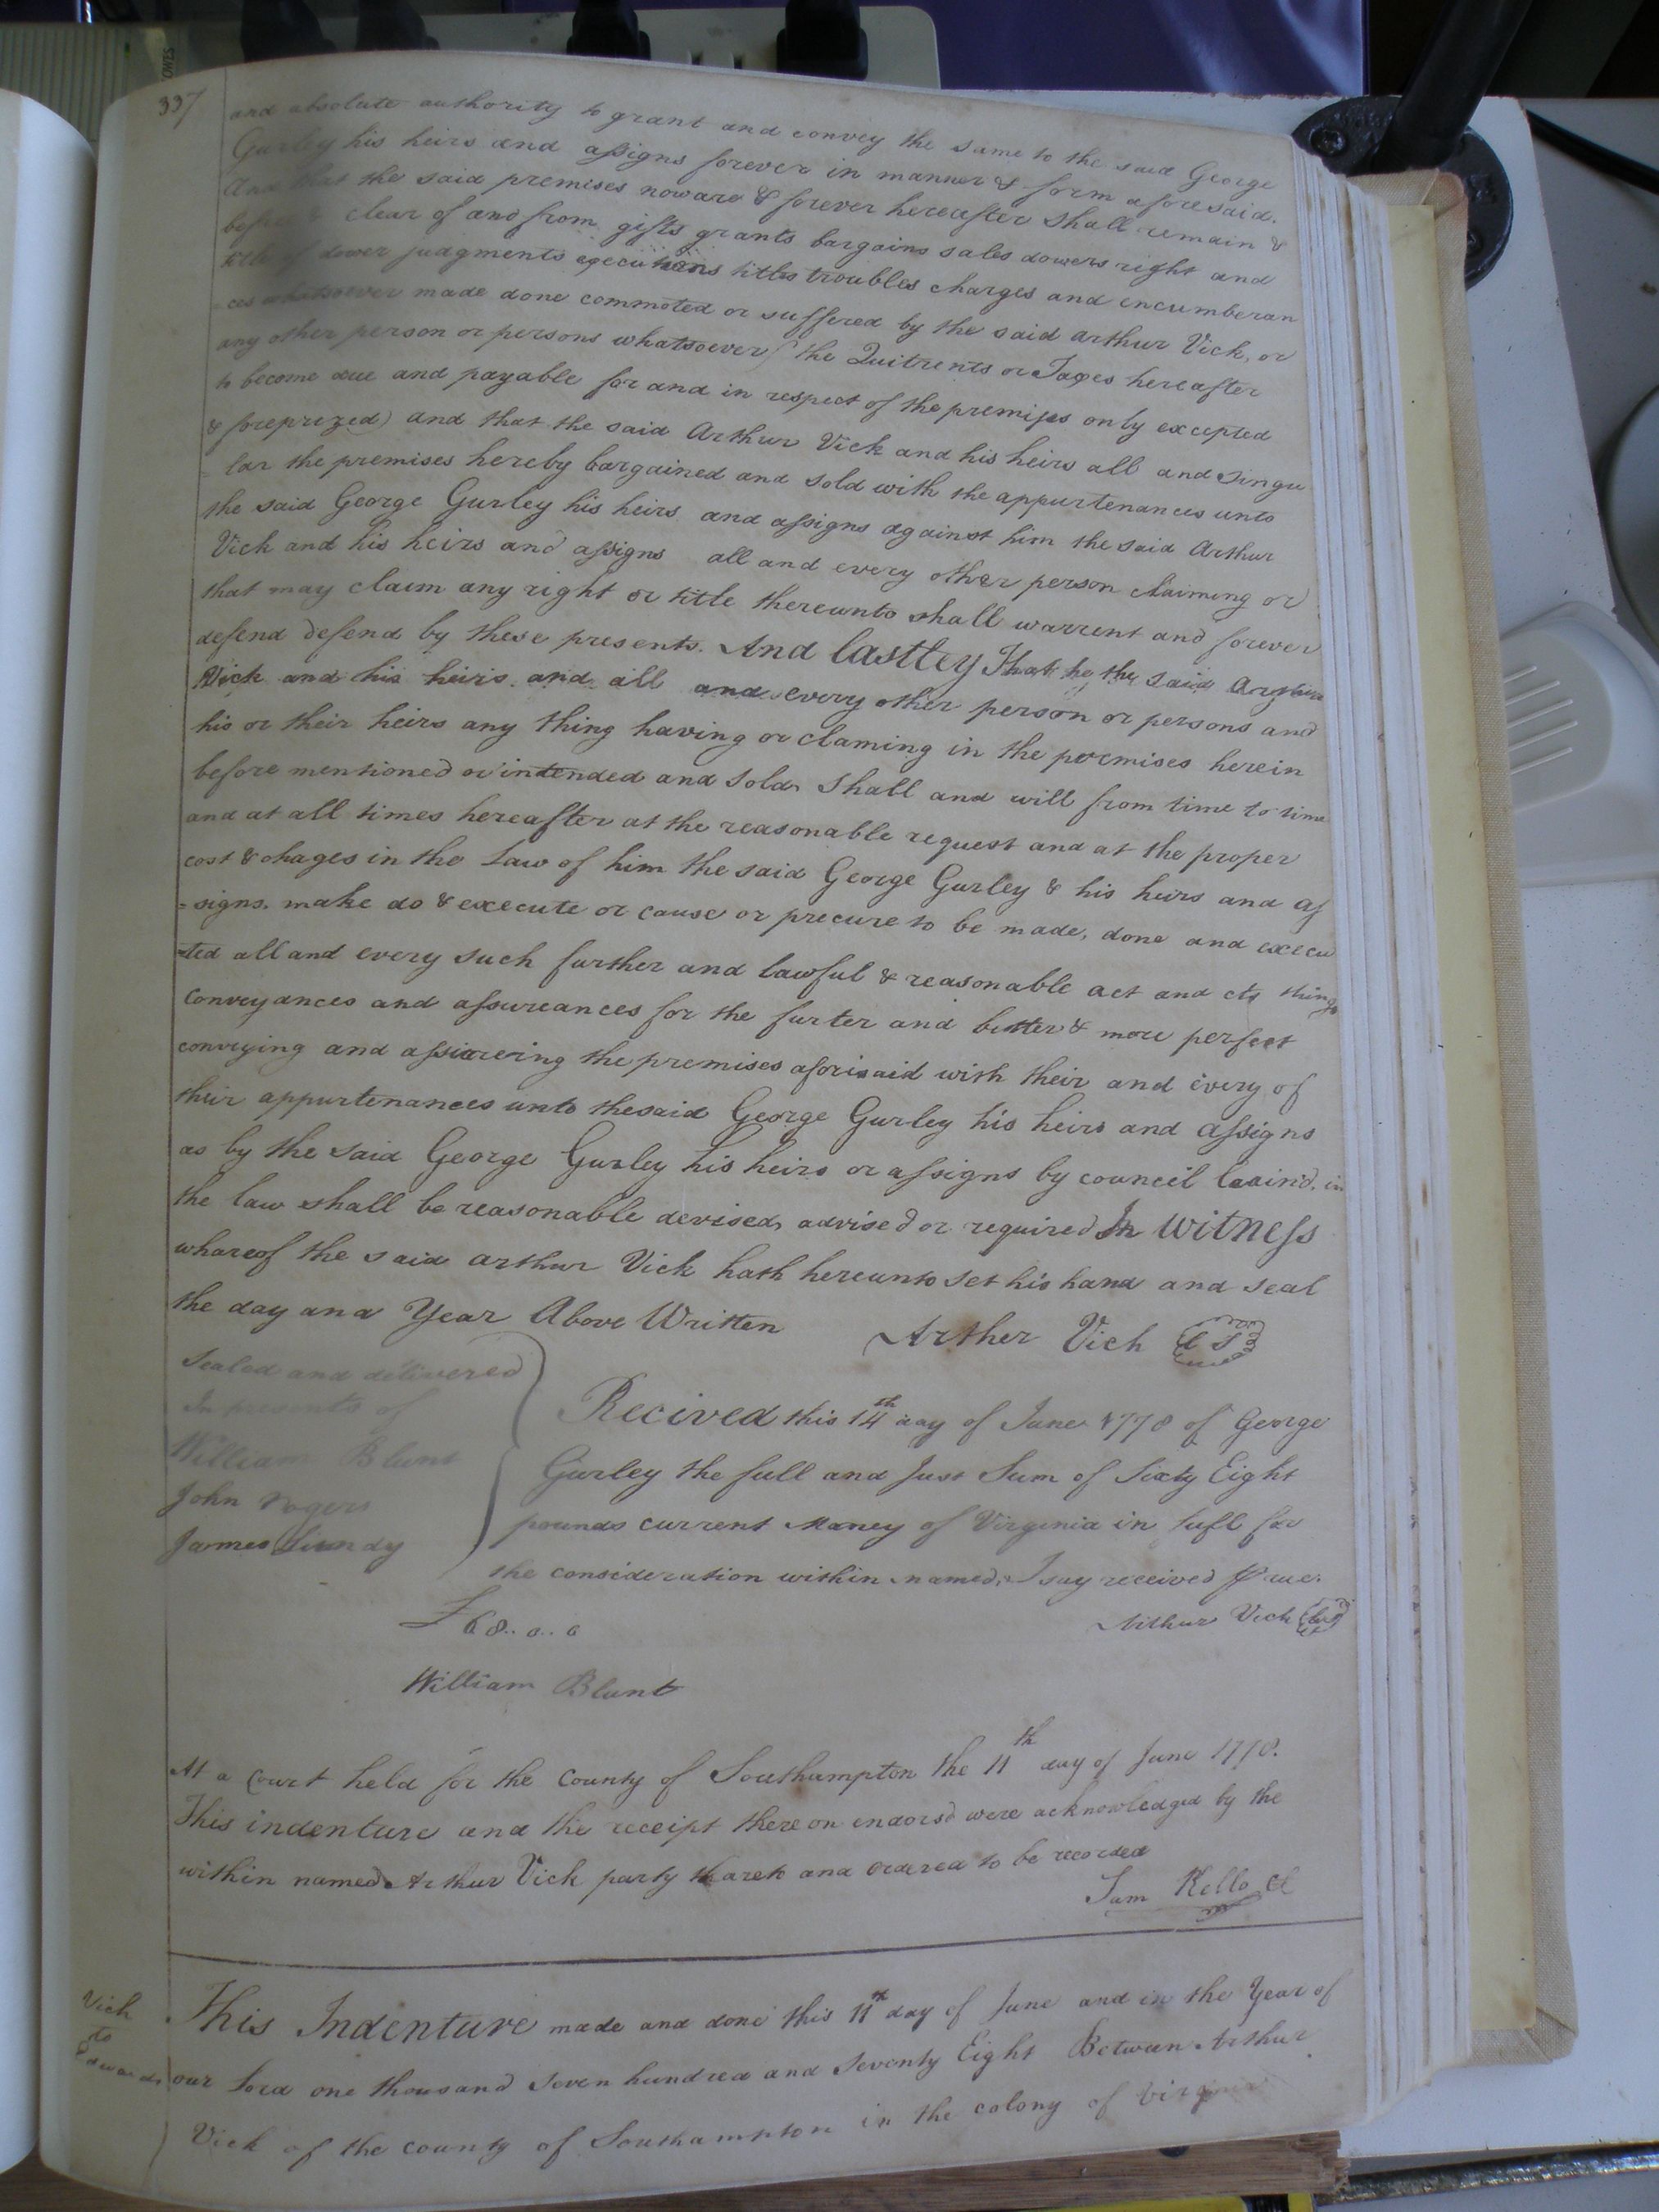 337
and absolute authority to grant and convey the same to the said George
Gurley his heirs and assigns forever in manner & form aforesaid.
And that the said premises now are & forever hereafter shall remain &
clear of and from gifts grants bargains sales dowers right and
title of dower judgments executions titles troubles charges and incumberan
ces whatsoever made done commoted or suffered by the said Arthur Vick, or
any other person or persons whatsoever (the Quitrents or Taxes hereafter
to become due and payable for and in respect of the premises only excepted
& foreprized) and that the said Arthur Vick and his heirs all and singu
lar the premises hereby bargained and sold with the appurtenances unto
the said George Gurley his heirs and assigns against him the said Arthur
Vick and his heirs and assigns all and every other person claiming or
that may claim any right or title thereunto shall warrent and forever
defend defend by these presents. And lastley That he the said Arthur
Vick and his heirs and all and every other person or persons and
his or their heirs any thing having or claming in the premises herein
before mentioned or intended and sold shall and will from time to time
and at all times hereafter at the reasonable request and at the proper
cost & chages in the Law of him the said George Gurley & his heirs and as
=signs. make do & execute or cause or precure to be made, done and execu
=ted all and every such further and lawful & reasonable act and cts things
conveyances and assureances for the furter and better & more perfect
conveying and assureing the premises aforisaid with their and every of
their appurtenances unto the said George Gurley his heirs and assigns
as by the said George Gurley his heirs or assigns by council in
the law shall be reasonable devised, advised or required In Witness
whareof the said Arthur Vick hath hereunto set his hand and seal
the day and Year Above Written Arther Vich LS
Sealed and delivered
In presents of
William Blunt
John Rogers
James Lundy
Recived this 14th day of June 1778 of George
Gurley the full and Just Sum of Sixty Eight
pounds current Maney of Virginia in full for
the consideration within named, I say received me.
£68..0..0 Arthur Vick
William Blunt
At a Court held for the County of Southampton the 11th day of June 1778.
This indenture and the receipt there on endorsd were acknowledged by the
within named Arthur Vick party thareto and ordered to be recorded
Sam Kello Cl
Vick
to
Edwards
This Indenture made and done this 11th day of June and in the Year of
our Lord one thousand seven hundred and Seventy Eight Between Arthur
Vick of the county of Southampton in the colony of Virginia